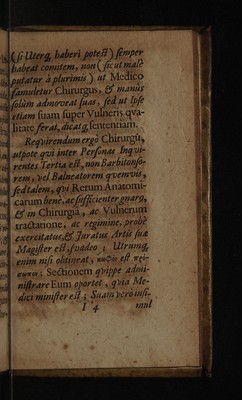 (, si Uterq, haberi potest) semper
habeat comitem, non (sicut malè
putatur à plurimis) ut Medico
famuletur Chirurgus, & manus
solùm admoveat suas, sed ut ipse
etiam suam super Vulneris qva-
litate ferat, dicatq, sententiam.
Reqvirendum ergò Chirurgũ,
utpote qvi inter Personas Inqvi-
rentes Tertia est, non Barbitonso-
rem, vel Balneatorem qvemvis,
sed talem, qvi Rerum Anatomi-
carum benè, ac sufficienter gnarq,
& in Chirurgiâ, ac Vulnerum
tractatione, ac regimine, probè
exercitatus, & Juratus Artis suæ
Magister est, svadeo; Utrumq,
enim nisi obtineat, κωφὸν est πρό-
σωπον: Sectionem qvippe admi-
nistrare Eum oportet, qvia Me-
dici minister est; Suam verò insi-
I 4 mul